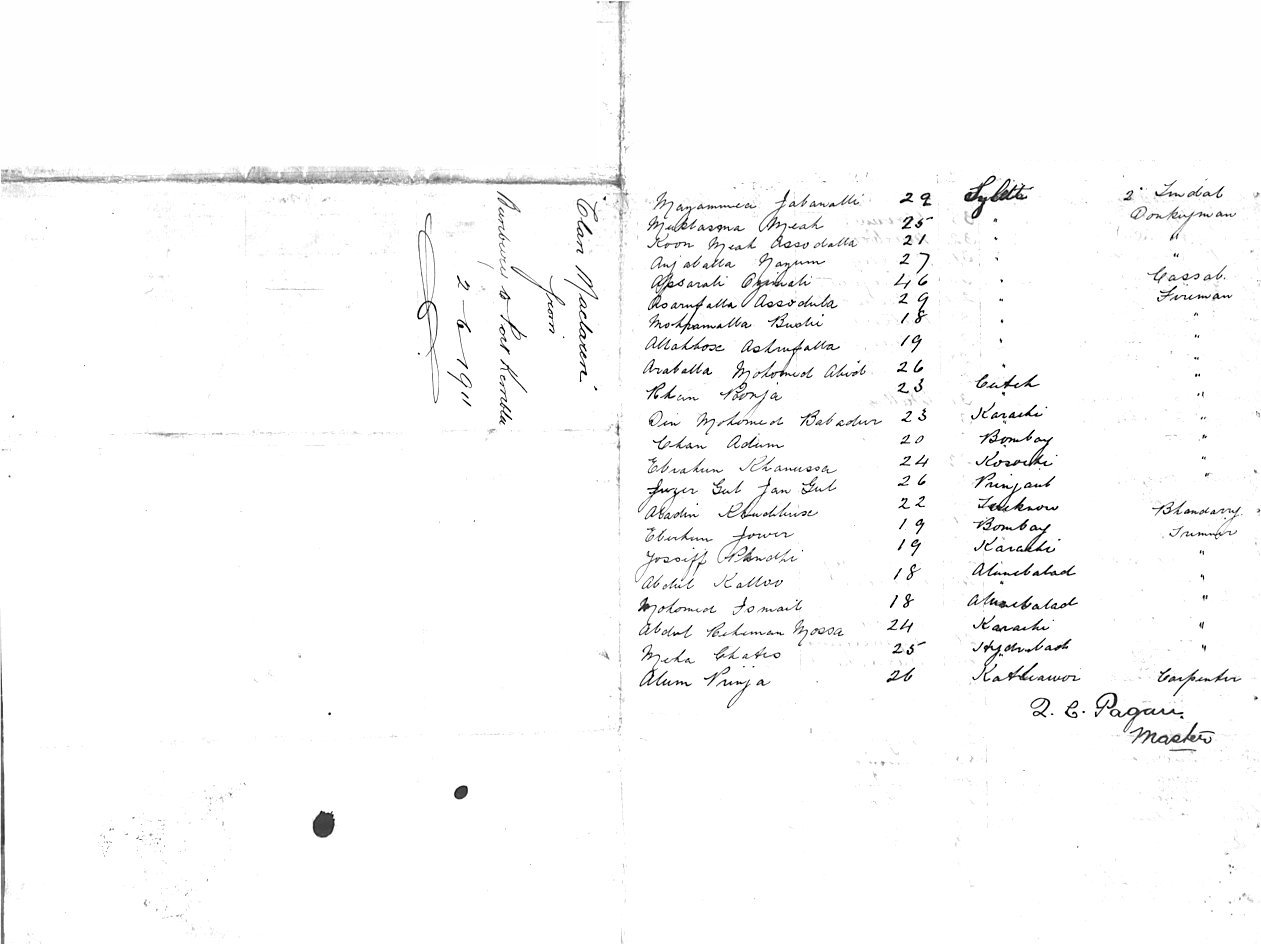 "Clan Maclaren"
from
Bunbury to Port Kembla
2-6-1911
Mayammea Jabanalli 29 Sylett 2" Tindal
Muktasma Meah 25 " Donkeyman
Koon Meah Assodalla 21 " "
Anjaballa Nazum 27 " "
Apsarali 46 " Cassab
Asarufalla Assodula 29 " Fireman
18 " "
Allahbox Ashrufalla 19 " "
Araballa Mohomed Abid 26 " "
Khan Poonja 23 Cutch "
Din Mohomed Babadur 23 Karachi "
Chan Adum 20 Bombay "
Ebrahim Khanussa 24 "
Gul Jan Gul 26 Punjaub
Aladin 22 Lucknow Bhandarry
Ebrhim Jower 19 Bombay Trimmer
Jossiff 19 Karachi "
Abdul Kalloo 18 "
Mohomed Ismail 18 "
Abdul Rehiman Mossa 24 Karachi "
Meha 25 Hydrabad "
Alum Prinja 26 Kathiawor Carpenter
Pagan.
Master